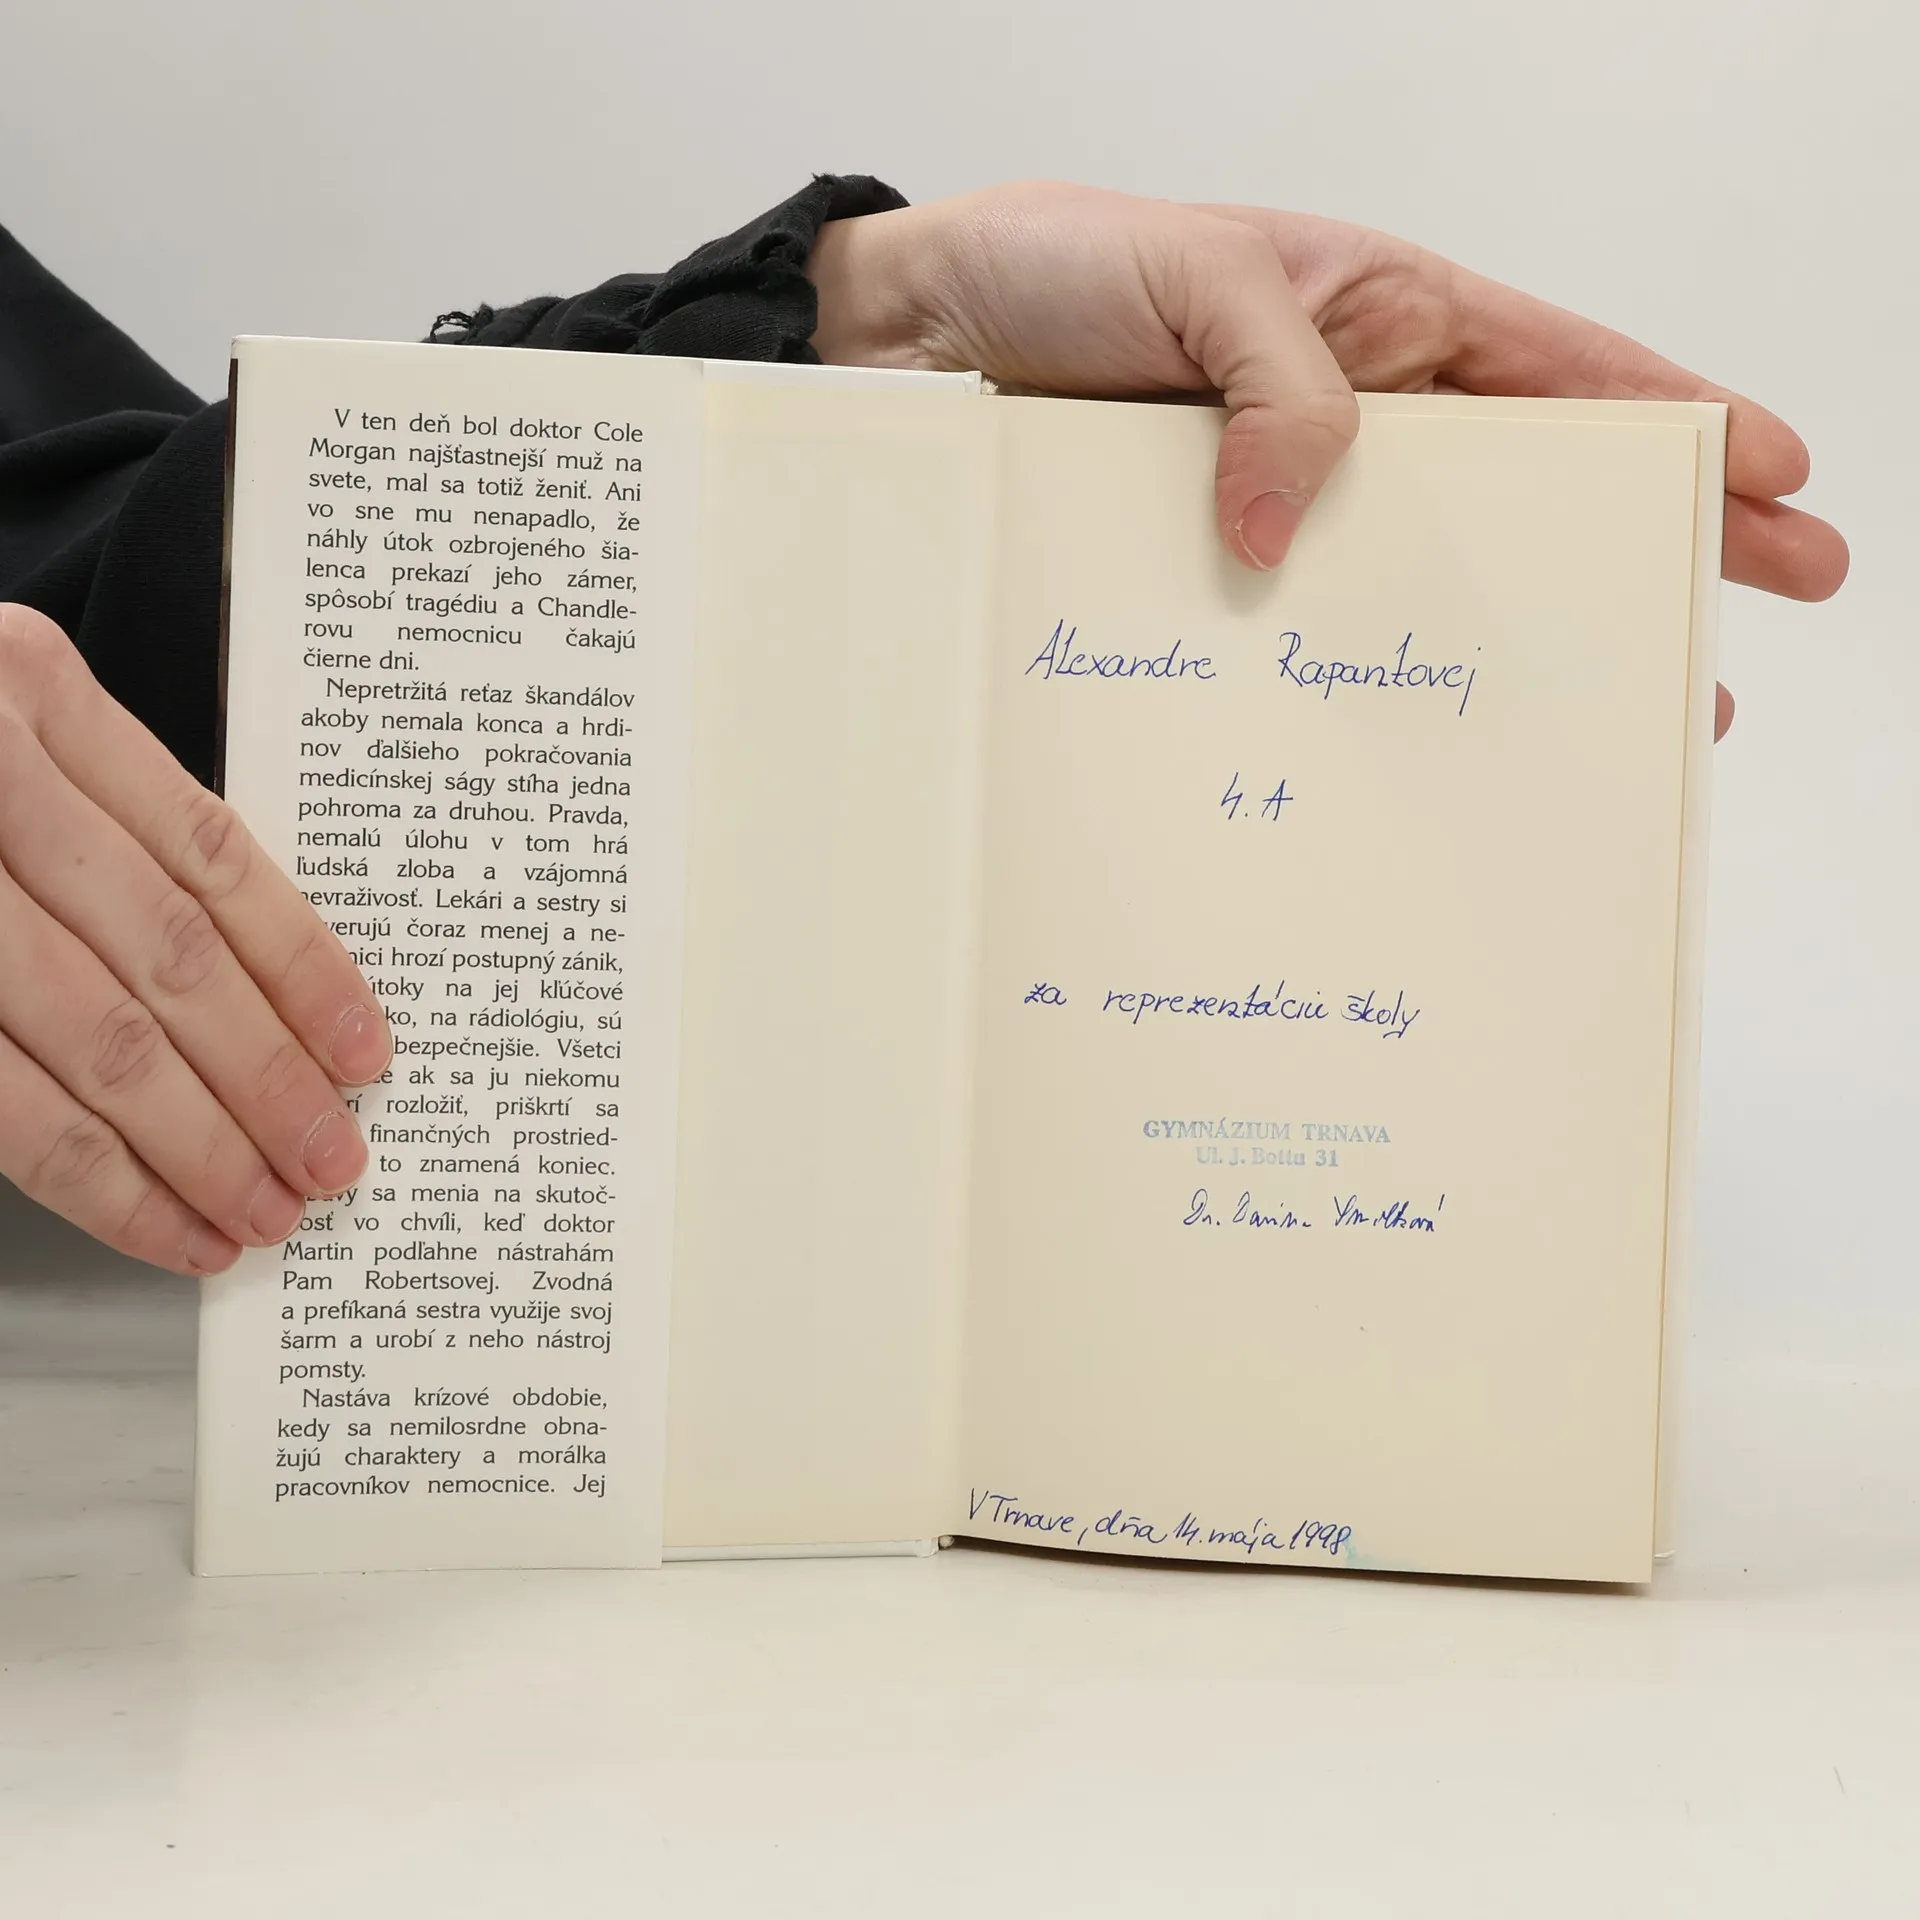 V ten deň bol doktor Cole
Morgan najšťastnejší muž na
svete, mal sa totiž ženiť. Ani
vo sne mu nenapadlo, že
náhly útok ozbrojeného šia-
lenca prekazí jeho zámer,
spôsobí tragédiu a Chandle-
rovu nemocnicu čakajú
čierne dni.
Nepretržitá reťaz škandálov
akoby nemala konca a hrdi-
nov ďalšieho pokračovania
medicínskej ságy stíha jedna
pohroma za druhou. Pravda,
nemalú úlohu v tom hrá
ľudská zloba a vzájomná
nevraživosť. Lekári a sestry si
verujú čoraz menej a ne-
nici hrozí postupný zánik,
útoky na jej kľúčové
ko, na rádiológiu, sú
bezpečnejšie. Všetci
že ak sa ju niekomu
rí rozložiť, priškrtí sa
finančných prostried-
to znamená koniec.
bavy sa menia na skutoč-
nosť vo chvíli, keď doktor
Martin podľahne nástrahám
Pam Robertsovej. Zvodná
a prefíkaná sestra využije svoj
šarm a urobí z neho nástroj
pomsty.
Nastáva krízové obdobie,
kedy sa nemilosrdne obna-
žujú charaktery a morálka
pracovníkov nemocnice. Jej
Alexandre Rapantovej
4. A
za reprezentáciu školy
GYMNÁZIUM TRNAVA
Ul. J. Bottu 31
Dr.
V Trnave, dňa 14. mája 1998